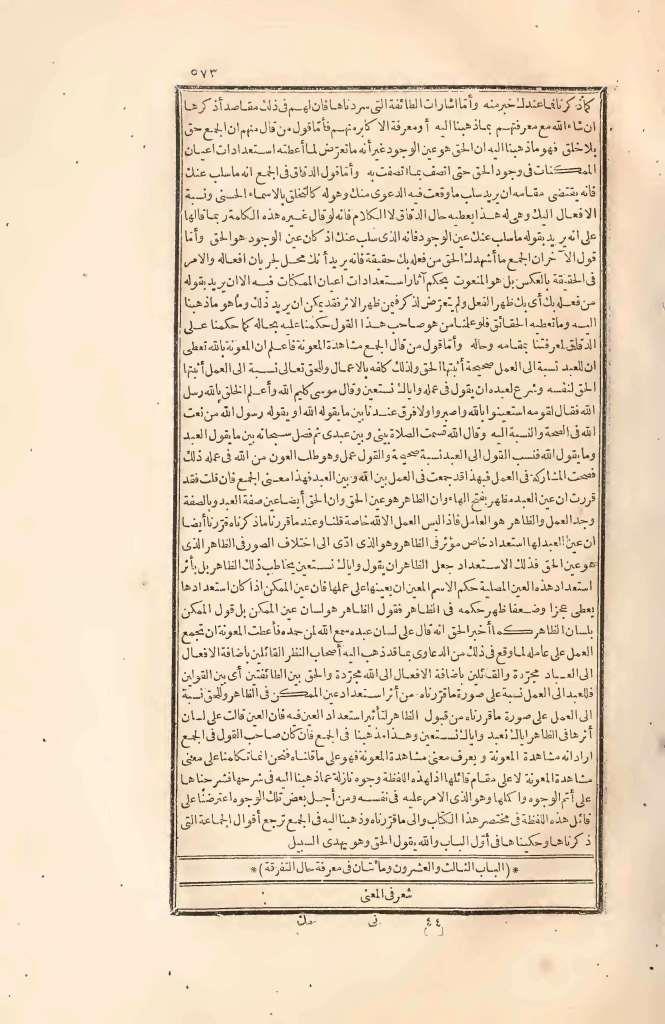 ٥٧٣
كما ذكرناها عندك خبر منه وأما اشارات الطائفة التى سردناها فان لهم فى ذلك مقاصد أذكرها
ان شاء الله مع معرفتهم بما ذهبنا اليه أو معرفة الاكابر منهم فأما قول من قال منهم ان الجمع حق
بلا خلق فهو ما ذهبنا اليه ان الحق هو عين الوجود غير أنه ما تعرّض لما أعطته استعدادات اعيان
الممكنات فى وجود الحق حتى اتصف بما اتصفت به وأما قول الدقاق فى الجمع انه ما سلب عنك
فانه يقتضى مقامه ان يريد سلب ما وقعت فيه الدعوى منك وهو له كالتخلق بالاسماء الحسنى ونسبة
الافعال اليك وهى له هذا يعطيه حال الدقاق لا الكلام فانه لو قال غيره هذه الكلمة ربما قالها
على انه يريد بقوله ما سلب عنك عين الوجود فانه الذى سلب عنك اذ كان عين الوجود هو الحق وأما
قول الآخر ان الجمع ما أشهدك الحق من فعله بك حقيقة فانه يريد أنك محل لجريان افعاله والامر
فى الحقيقة بالعكس بل هو المنعوت بحكم آثار استعدادات اعيان الممكنات فيه الا ان يريد بقوله
من فعله بك أى بك ظهر الفعل ولم يتعرّض لذكر فيمن ظهر الاثر فقد يمكن ان يريد ذلك وما هو مذهبنا
اليه وما تعطيه الحقائق فلو علمنا من هو صاحب هذا القول حكمنا عليه بحاله كما حكمنا على
الدقاق لمعرفتنا بمقامه وحاله وأما قول من قال الجمع مشاهدة المعونة فاعلم ان المعونة بالله تعطى
ان للعبد نسبة الى العمل صحيحة أثبتها الحق ولذلك كلفه بالاعمال وللحق تعالى نسبة الى العمل أثبتها
الحق لنفسه وشرع لعبده ان يقول فى عمله واياك نستعين وقال موسى كليم الله وأعلم الخلق بالله رسل
الله فقال لقومه استعينوا بالله واصبروا ولا فرق عندنا بين ما يقوله الله او يقوله رسول الله من نعت
الله فى الصحة والنسبة اليه وقال الله قسمت الصلاة بينى وبين عبدى ثم فصل سبحانه بين ما يقول العبد
وما يقول الله فنسب القول الى العبد نسبة صحيحة والقول عمل وهو طلب العون من الله فى عمله ذلك
فصحت المشاركة فى العمل فبهذا قد جمعت فى العمل بين الله وبين العبد فهذا معنى الجمع فان قلت فقد
قررت ان عين العبد مظهر بفتح الهاء وان الظاهر هو عين الحق وان الحق أيضا عين صفة العبد وبالصفة
وجد العمل والظاهر هو العامل فاذا ليس العمل الا لله خاصة قلنا وعند ما قررنا ما ذكرناه قررنا أيضا
ان عين العبد لها استعداد خاص مؤثر فى الظاهر وهو الذى ادّى الى اختلاف الصور فى الظاهر الذى
هو عين الحق فذلك الاستعداد جعل الظاهر ان يقول واياك نستعين يخاطب ذلك الظاهر بل بأثر
استعداد هذه العين المصلية حكم الاسم المعين ان يعينها على عملها فان عين الممكن اذا كان استعدادها
يعطى عجزا وضعفا ظهر حكمه فى الظاهر فقول الظاهر هو لسان عين الممكن بل قول الممكن
بلسان الظاهر كما أخبر الحق انه قال على لسان عبده سمع الله لمن حمده فأعطت المعونة ان تجمع
العمل على عامله لما وقع فى ذلك من الدعاوى بما قد ذهب اليه أصحاب النظر القائلين باضافة الافعال
الى العباد مجرّدة والقائلين باضافة الافعال الى الله مجرّدة والحق بين الطائفتين أى بين القولين
فللعبد الى العمل نسبة على صورة ما قررناه من أثر استعداد عين الممكن فى الظاهر وللحق نسبة
الى العمل على صورة ما قررناه من قبول الظاهر لتأثير استعداد العين فيه فان العين قالت على لسان
أثرها فى الظاهر اياك نعبد واياك نستعين وهذا مذهبنا فى الجمع فان كان صاحب القول فى الجمع
اراد انه مشاهدة المعونة ويعرف معنى مشاهدة المعونة فهو على ما قلناه فنحن انما تكلمنا على معنى
مشاهدة المعونة لا على مقام قائلها اذ لهذه اللفظة وجوه نازلة عما ذهبنا اليه فى شرحها فشرحناها
على أتم الوجوه واكملها وهو الذى الامر عليه فى نفسه ومن أجل بعض تلك الوجوه اعترضنا على
قائل هذه اللفظة فى مختصر هذا الكتاب والى ما قررناه وذهبنا اليه فى الجمع ترجع أقوال الجماعة التى
ذكرناها وحكيناها فى أوّل الباب والله يقول الحق وهو يهدى السبيل
*(الباب الثالث والعشرون ومائتان فى معرفة حال التفرقة)*
شعر فى المعنى
[٤٤] نى